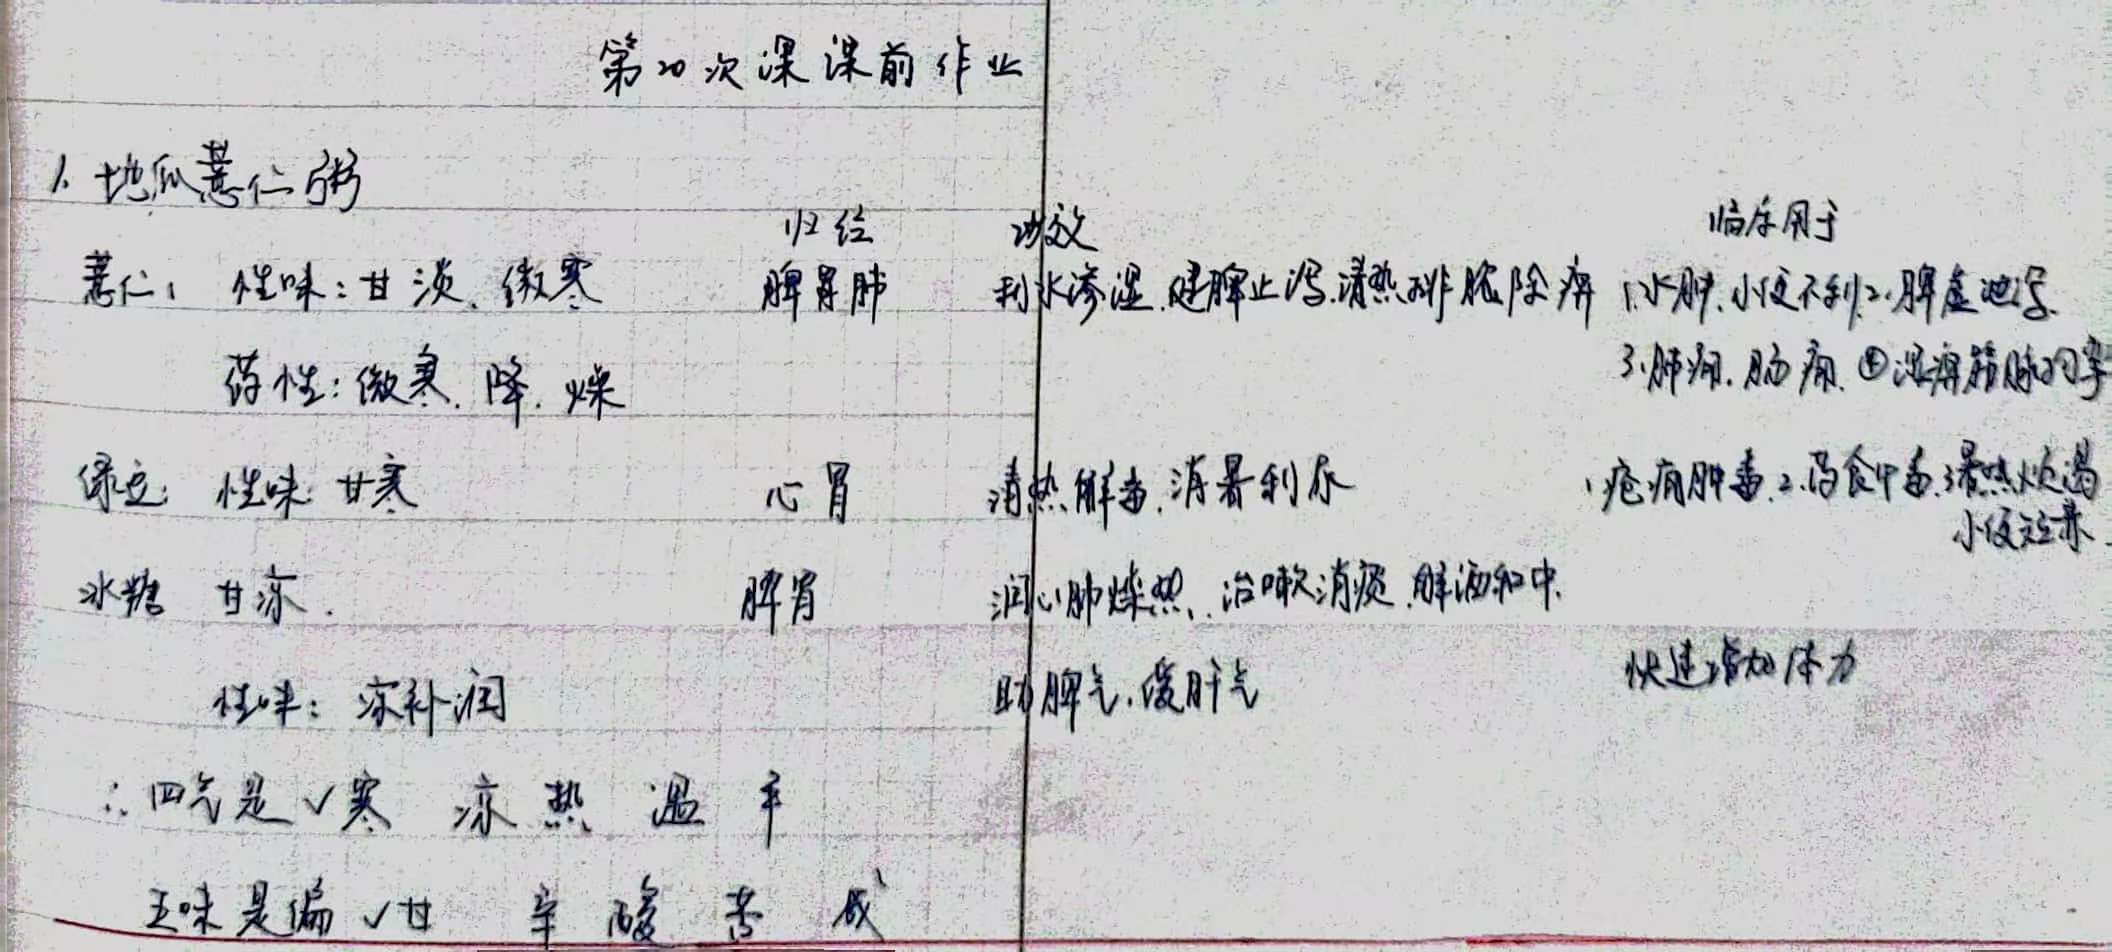 第20次课 课前作业
1. 地瓜薏仁粥
归经 功效 临床用于
薏仁: 性味:甘淡、微寒 脾胃肺 利水渗湿.健脾止泻.清热排脓除痹 1.水肿.小便不利2.脾虚泄泻.
药性:微寒.降.燥 3.肺痈.肠痈.④湿痹筋脉拘挛
绿豆: 性味:甘寒 心胃 清热解毒.消暑利尿 1疮痈肿毒.2.药食中毒.3暑热烦渴
小便短赤.
冰糖 甘凉. 脾胃 润心肺燥热、治嗽消痰.解酒和中.
性味:凉补润 助脾气.缓肝气 快速增加体力
∴四气是√寒 凉 热 温 平
五味是偏√甘 辛 酸 苦 咸